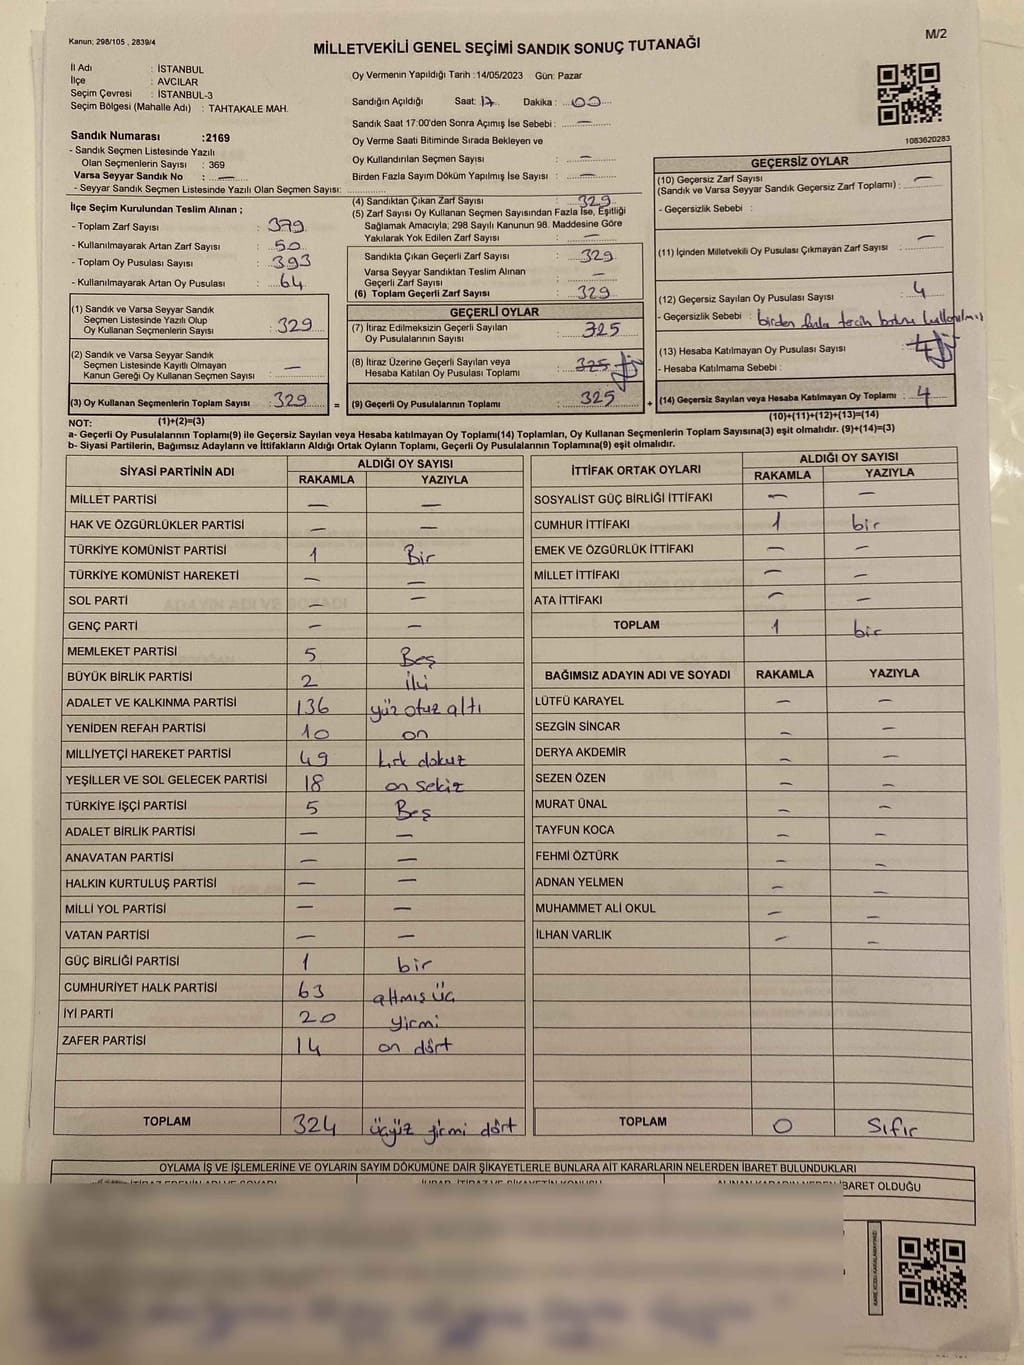 Kanun: 298/105 , 2839/4
M/2
MİLLETVEKİLİ GENEL SEÇİMİ SANDIK SONUÇ TUTANAĞI
İl Adı : İSTANBUL
İlçe : AVCILAR
Seçim Çevresi : İSTANBUL-3
Seçim Bölgesi (Mahalle Adı) : TAHTAKALE MAH.
Sandık Numarası :2169
- Sandık Seçmen Listesinde Yazılı
Olan Seçmenlerin Sayısı : 369
Varsa Seyyar Sandık No : —
- Seyyar Sandık Seçmen Listesinde Yazılı Olan Seçmen Sayısı:
Oy Vermenin Yapıldığı Tarih :14/05/2023 Gün: Pazar
Sandığın Açıldığı Saat: 17 Dakika : 00
Sandık Saat 17:00'den Sonra Açımış İse Sebebi : —
Oy Verme Saati Bitiminde Sırada Bekleyen ve
Oy Kullandırılan Seçmen Sayısı : —
Birden Fazla Sayım Döküm Yapılmış İse Sayısı : —
1083620283
İlçe Seçim Kurulundan Teslim Alınan ;
- Toplam Zarf Sayısı : 379
- Kullanılmayarak Artan Zarf Sayısı : 50
- Toplam Oy Pusulası Sayısı : 393
- Kullanılmayarak Artan Oy Pusulası : 64
(1) Sandık ve Varsa Seyyar Sandık
Seçmen Listesinde Yazılı Olup
Oy Kullanan Seçmenlerin Sayısı : 329
(2) Sandık ve Varsa Seyyar Sandık
Seçmen Listesinde Kayıtlı Olmayan
Kanun Gereği Oy Kullanan Seçmen Sayısı : —
(3) Oy Kullanan Seçmenlerin Toplam Sayısı : 329 =
(4) Sandıktan Çıkan Zarf Sayısı : 329
(5) Zarf Sayısı Oy Kullanan Seçmen Sayısından Fazla İse, Eşitliği
Sağlamak Amacıyla; 298 Sayılı Kanunun 98. Maddesine Göre
Yakılarak Yok Edilen Zarf Sayısı : —
Sandıkta Çıkan Geçerli Zarf Sayısı : 329
Varsa Seyyar Sandıktan Teslim Alınan
Geçerli Zarf Sayısı : —
(6) Toplam Geçerli Zarf Sayısı : 329
GEÇERLİ OYLAR
(7) İtiraz Edilmeksizin Geçerli Sayılan
Oy Pusulalarının Sayısı : 325
(8) İtiraz Üzerine Geçerli Sayılan veya
Hesaba Katılan Oy Pusulası Toplamı : 325
(9) Geçerli Oy Pusulalarının Toplamı : 325 +
GEÇERSİZ OYLAR
(10) Geçersiz Zarf Sayısı
(Sandık ve Varsa Seyyar Sandık Geçersiz Zarf Toplamı) : —
- Geçersizlik Sebebi :
(11) İçinden Milletvekili Oy Pusulası Çıkmayan Zarf Sayısı : —
(12) Geçersiz Sayılan Oy Pusulası Sayısı : 4
- Geçersizlik Sebebi : birden fazla tecih bolmu kullanılmış
(13) Hesaba Katılmayan Oy Pusulası Sayısı : 4
- Hesaba Katılmama Sebebi :
(14) Geçersiz Sayılan veya Hesaba Katılmayan Oy Toplamı : 4
NOT: (1)+(2)=(3) (10)+(11)+(12)+(13)=(14)
a- Geçerli Oy Pusulalarının Toplamı(9) ile Geçersiz Sayılan veya Hesaba katılmayan Oy Toplamı(14) Toplamları, Oy Kullanan Seçmenlerin Toplam Sayısına(3) eşit olmalıdır. (9)+(14)=(3)
b- Siyasi Partilerin, Bağımsız Adayların ve İttifakların Aldığı Ortak Oyların Toplamı, Geçerli Oy Pusulalarının Toplamına(9) eşit olmalıdır.
SİYASİ PARTİNİN ADI ALDIĞI OY SAYISI
RAKAMLA YAZIYLA
MİLLET PARTİSİ — —
HAK VE ÖZGÜRLÜKLER PARTİSİ — —
TÜRKİYE KOMÜNİST PARTİSİ 1 Bir
TÜRKİYE KOMÜNİST HAREKETİ — —
SOL PARTİ — —
GENÇ PARTİ — —
MEMLEKET PARTİSİ 5 Beş
BÜYÜK BİRLİK PARTİSİ 2 İki
ADALET VE KALKINMA PARTİSİ 136 yüz otuz altı
YENİDEN REFAH PARTİSİ 10 on
MİLLİYETÇİ HAREKET PARTİSİ 49 kırk dokuz
YEŞİLLER VE SOL GELECEK PARTİSİ 18 on sekiz
TÜRKİYE İŞÇİ PARTİSİ 5 Beş
ADALET BİRLİK PARTİSİ — —
ANAVATAN PARTİSİ — —
HALKIN KURTULUŞ PARTİSİ — —
MİLLİ YOL PARTİSİ — —
VATAN PARTİSİ — —
GÜÇ BİRLİĞİ PARTİSİ 1 bir
CUMHURİYET HALK PARTİSİ 63 altmış üç
İYİ PARTİ 20 yirmi
ZAFER PARTİSİ 14 on dört
TOPLAM 324 üçyüz yirmi dört
İTTİFAK ORTAK OYLARI ALDIĞI OY SAYISI
RAKAMLA YAZIYLA
SOSYALİST GÜÇ BİRLİĞİ İTTİFAKI — —
CUMHUR İTTİFAKI 1 bir
EMEK VE ÖZGÜRLÜK İTTİFAKI — —
MİLLET İTTİFAKI — —
ATA İTTİFAKI — —
TOPLAM 1 bir
BAĞIMSIZ ADAYIN ADI VE SOYADI RAKAMLA YAZIYLA
LÜTFÜ KARAYEL — —
SEZGİN SİNCAR — —
DERYA AKDEMİR — —
SEZEN ÖZEN — —
MURAT ÜNAL — —
TAYFUN KOCA — —
FEHMİ ÖZTÜRK — —
ADNAN YELMEN — —
MUHAMMET ALİ OKUL — —
İLHAN VARLIK — —
TOPLAM 0 Sıfır
OYLAMA İŞ VE İŞLEMLERİNE VE OYLARIN SAYIM DÖKÜMÜNE DAİR ŞİKAYETLERLE BUNLARA AİT KARARLARIN NELERDEN İBARET BULUNDUKLARI
İBARET OLDUĞU